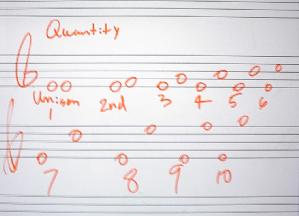 Quantity
Unison 2nd 3 4 5 6
1
7 8 9 10